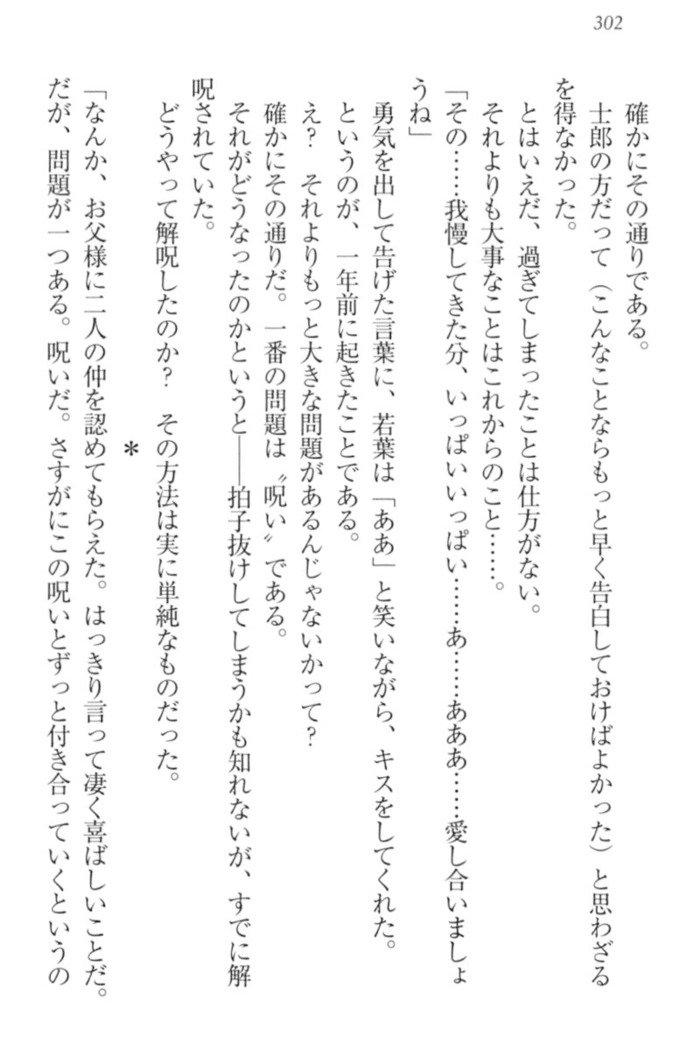 302
確かにその通りである。
士郎の方だって（こんなことならもっと早く告白しておけばよかった）と思わざる
を得なかった。
とはいえだ、過ぎてしまったことは仕方がない。
それよりも大事なことはこれからのこと……。
「その……我慢してきた分、いっぱいいっぱい……あ……あああ……愛し合いましょ
うね」
勇気を出して告げた言葉に、若葉は「ああ」と笑いながら、キスをしてくれた。
というのが、一年前に起きたことである。
え？　それよりもっと大きな問題があるんじゃないかって？
確かにその通りだ。一番の問題は〝呪い〟である。
それがどうなったのかというと――拍子抜けしてしまうかも知れないが、すでに解
呪されていた。
どうやって解呪したのか？　その方法は実に単純なものだった。
＊
「なんか、お父様に二人の仲を認めてもらえた。はっきり言って凄く喜ばしいことだ。
だが、問題が一つある。呪いだ。さすがにこの呪いとずっと付き合っていくというの